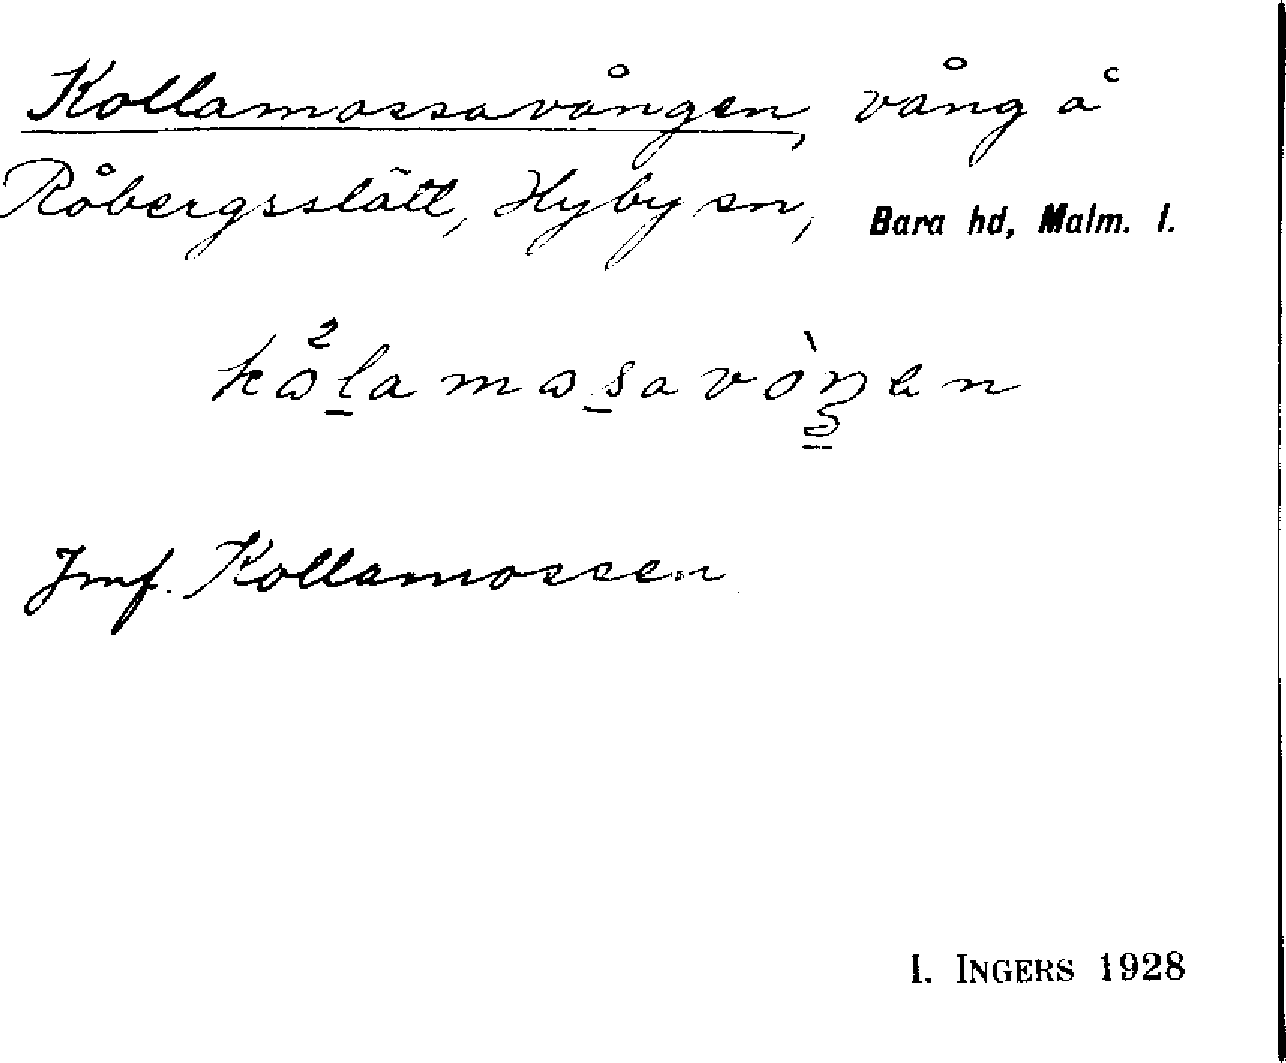 Kollamossavången, vång å
Råbergsslätt, Hyby sn, Bara hd, Malm. l.
kɷ²l̲amɷs̲avòŋ̲en
Jmf. Kollamossen
I. INGERS 1928